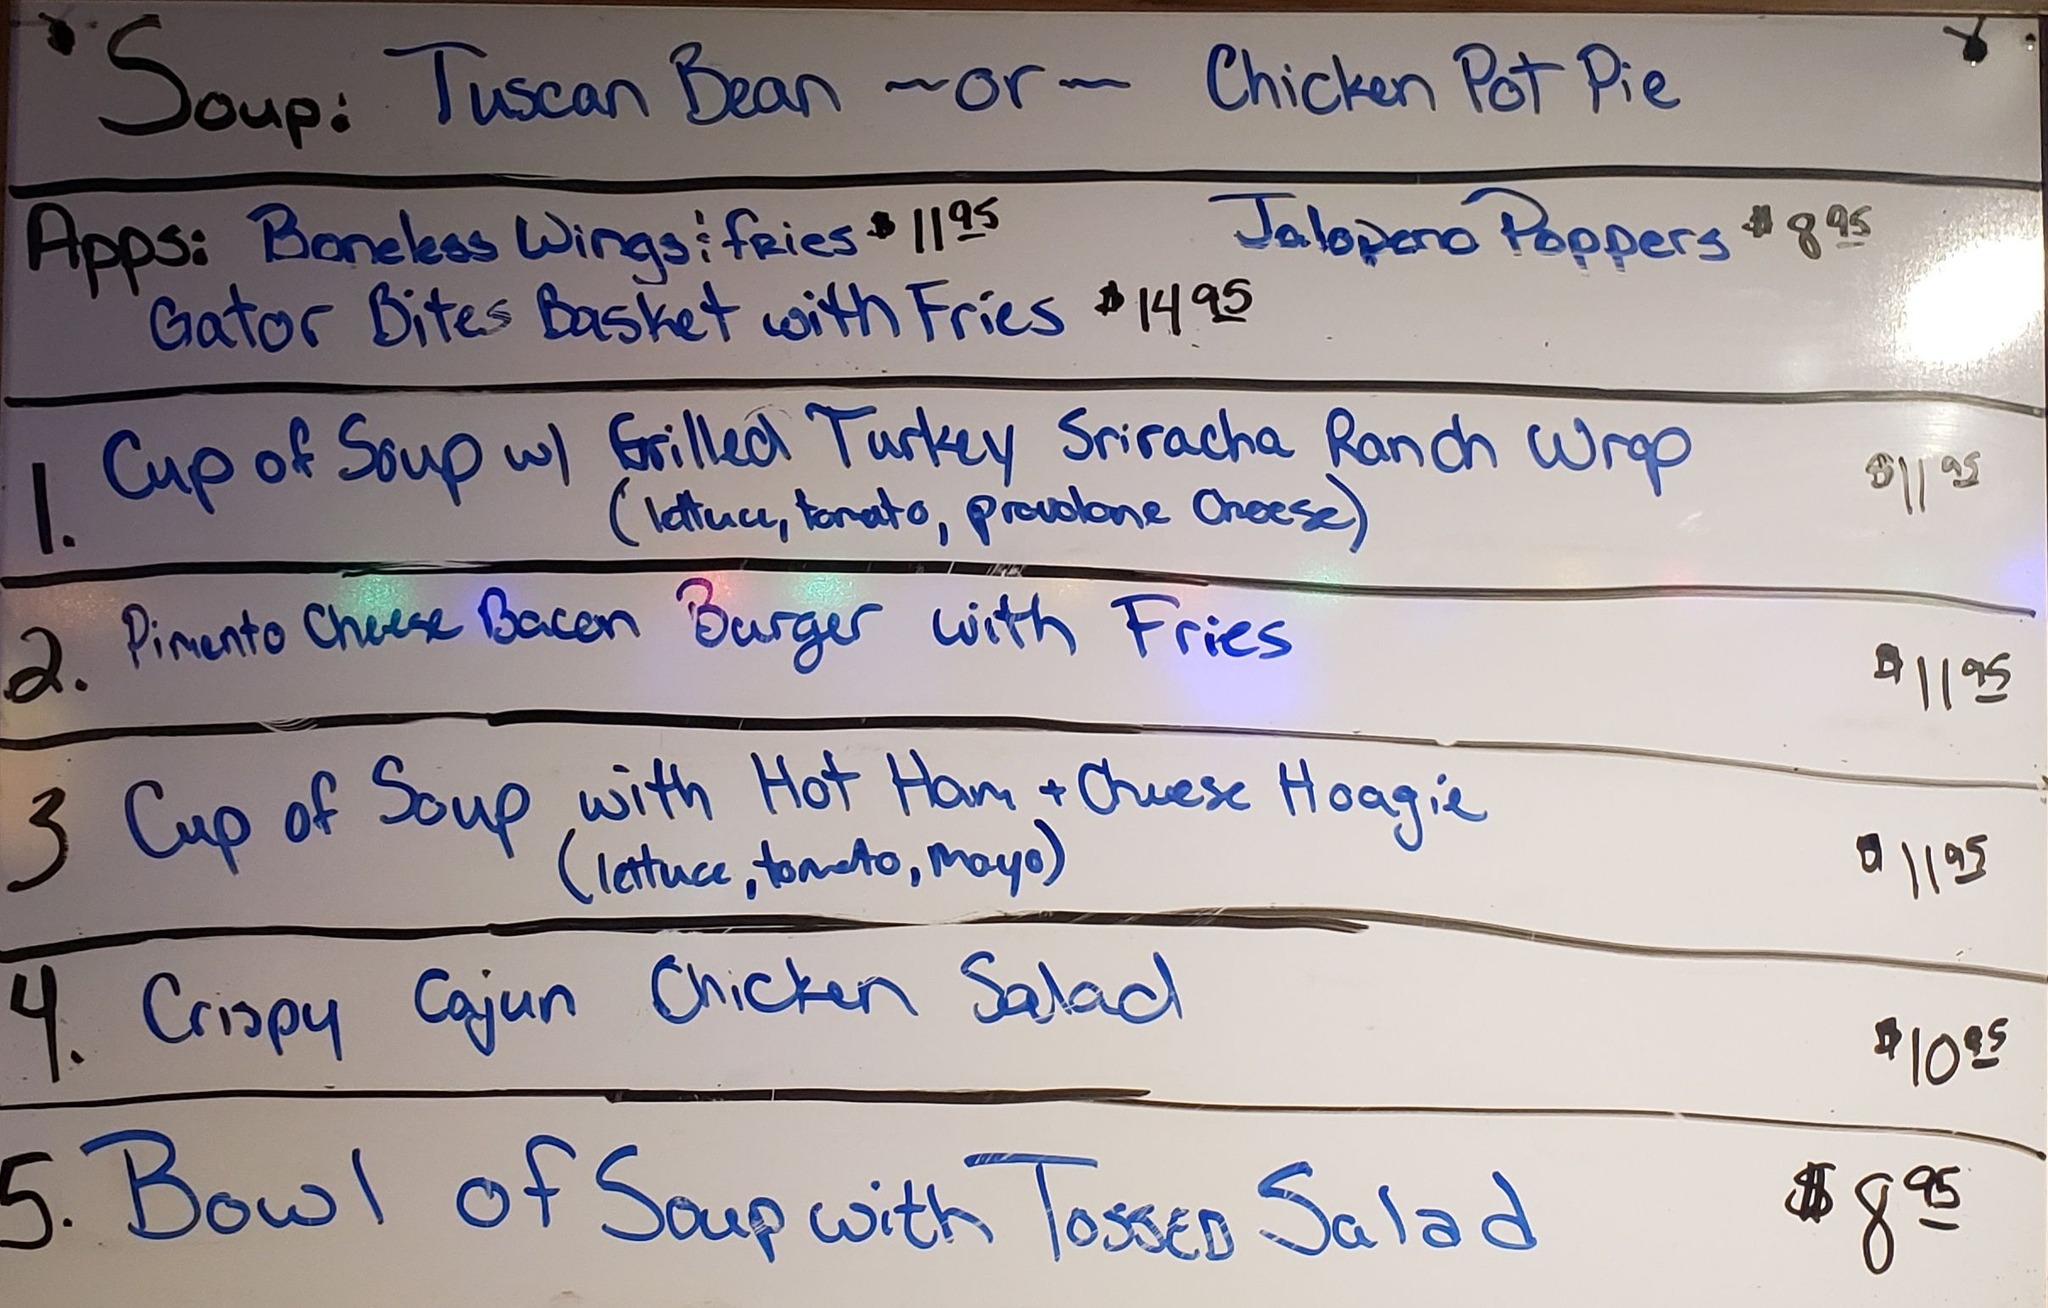 Soup: Tuscan Bean ~or~ Chicken Pot Pie
Apps: Boneless Wings & fries $11.95 Jalopeno Poppers $8.95
Gator Bites Basket with Fries $14.95
1. Cup of Soup w/ Grilled Turkey Sriracha Ranch Wrap $11.95
(lettuce, tomato, provolone Cheese)
2. Pimento Cheese Bacon Burger with Fries $11.95
3 Cup of Soup with Hot Ham + Cheese Hoagie $11.95
(lettuce, tomato, mayo)
4. Crispy Cajun Chicken Salad $10.95
5. Bowl of Soup with Tossed Salad $8.95